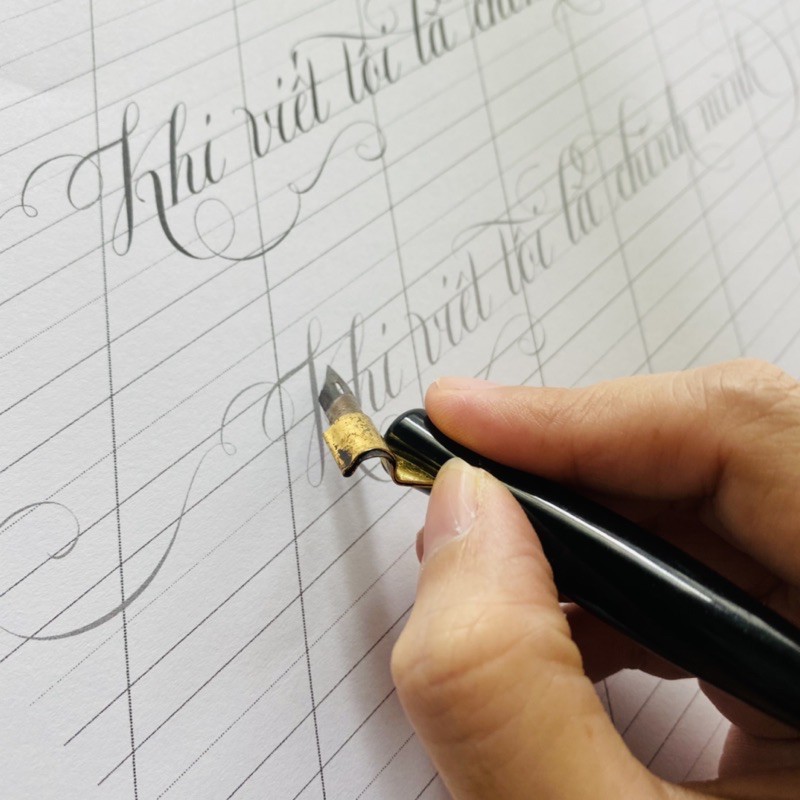 Khi viết tôi là
Khi viết tôi là chính mình